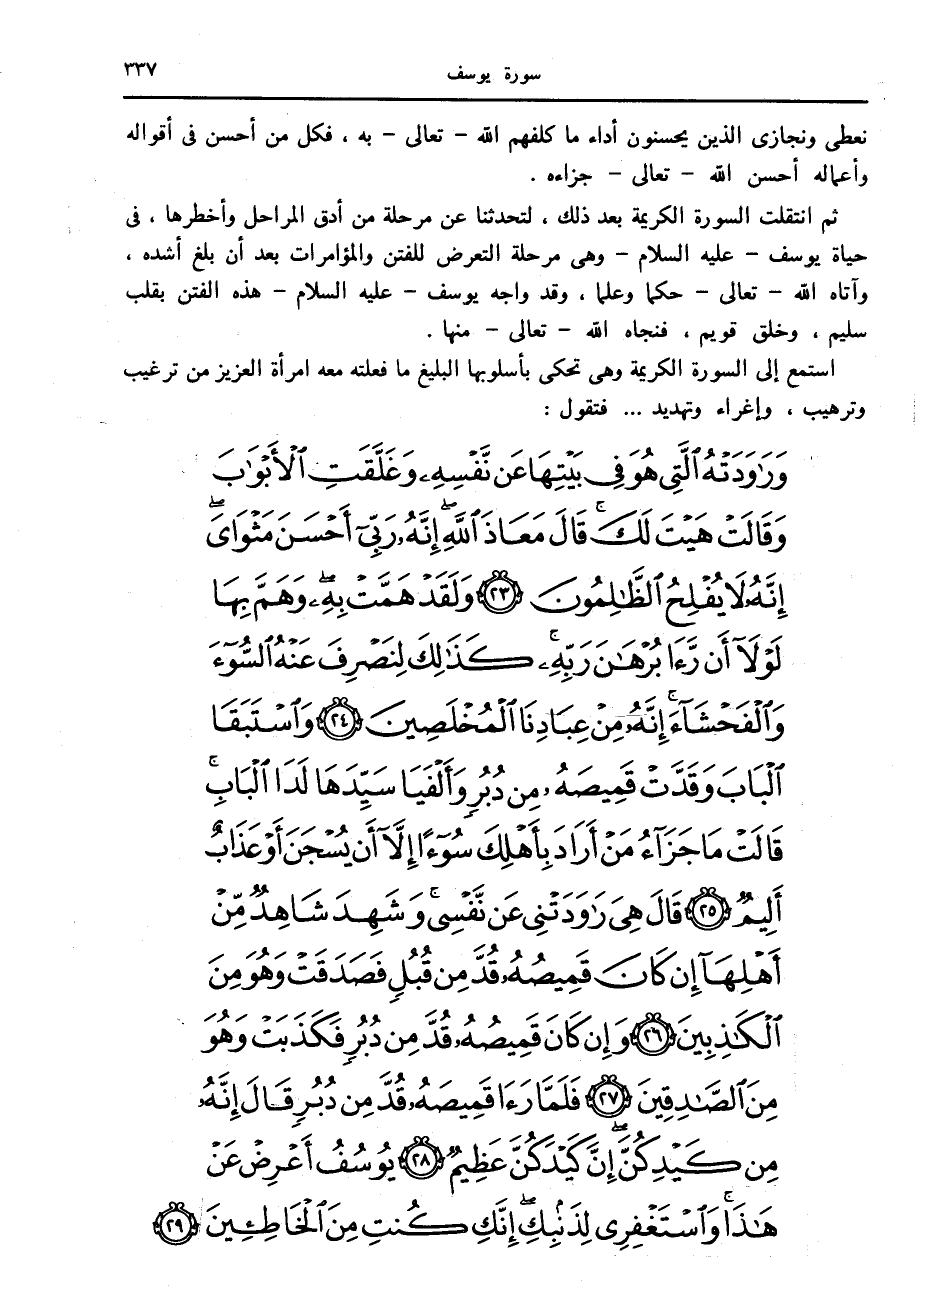 سورة يوسف ٣٣٧
نعطى ونجازى الذين يحسنون أداء ما كلفهم الله – تعالى – به ، فكل من أحسن فى أقواله
وأعماله أحسن الله – تعالى – جزاءه .
ثم انتقلت السورة الكريمة بعد ذلك ، لتحدثنا عن مرحلة من أدق المراحل وأخطرها ، فى
حياة يوسف – عليه السلام – وهى مرحلة التعرض للفتن والمؤامرات بعد أن بلغ أشده ،
وآتاه الله – تعالى – حكما وعلما ، وقد واجه يوسف – عليه السلام – هذه الفتن بقلب
سليم ، وخلق قويم ، فنجاه الله – تعالى – منها .
استمع إلى السورة الكريمة وهى تحكى بأسلوبها البليغ ما فعلته معه امرأة العزيز من ترغيب
وترهيب ، وإغراء وتهديد ... فتقول :
وَرَٰوَدَتْهُ ٱلَّتِى هُوَ فِى بَيْتِهَا عَن نَّفْسِهِۦ وَغَلَّقَتِ ٱلْأَبْوَٰبَ
وَقَالَتْ هَيْتَ لَكَ ۚ قَالَ مَعَاذَ ٱللَّهِ ۖ إِنَّهُۥ رَبِّىٓ أَحْسَنَ مَثْوَاىَ ۖ
إِنَّهُۥ لَا يُفْلِحُ ٱلظَّٰلِمُونَ ﴿٢٣﴾ وَلَقَدْ هَمَّتْ بِهِۦ ۖ وَهَمَّ بِهَا
لَوْلَآ أَن رَّءَا بُرْهَٰنَ رَبِّهِۦ ۚ كَذَٰلِكَ لِنَصْرِفَ عَنْهُ ٱلسُّوٓءَ
وَٱلْفَحْشَآءَ ۚ إِنَّهُۥ مِنْ عِبَادِنَا ٱلْمُخْلَصِينَ ﴿٢٤﴾ وَٱسْتَبَقَا
ٱلْبَابَ وَقَدَّتْ قَمِيصَهُۥ مِن دُبُرٍ وَأَلْفَيَا سَيِّدَهَا لَدَا ٱلْبَابِ ۚ
قَالَتْ مَا جَزَآءُ مَنْ أَرَادَ بِأَهْلِكَ سُوٓءًا إِلَّآ أَن يُسْجَنَ أَوْ عَذَابٌ
أَلِيمٌ ﴿٢٥﴾ قَالَ هِىَ رَٰوَدَتْنِى عَن نَّفْسِى ۚ وَشَهِدَ شَاهِدٌ مِّنْ
أَهْلِهَآ إِن كَانَ قَمِيصُهُۥ قُدَّ مِن قُبُلٍ فَصَدَقَتْ وَهُوَ مِنَ
ٱلْكَٰذِبِينَ ﴿٢٦﴾ وَإِن كَانَ قَمِيصُهُۥ قُدَّ مِن دُبُرٍ فَكَذَبَتْ وَهُوَ
مِنَ ٱلصَّٰدِقِينَ ﴿٢٧﴾ فَلَمَّا رَءَا قَمِيصَهُۥ قُدَّ مِن دُبُرٍ قَالَ إِنَّهُۥ
مِن كَيْدِكُنَّ ۖ إِنَّ كَيْدَكُنَّ عَظِيمٌ ﴿٢٨﴾ يُوسُفُ أَعْرِضْ عَنْ
هَٰذَا ۚ وَٱسْتَغْفِرِى لِذَنۢبِكِ ۖ إِنَّكِ كُنتِ مِنَ ٱلْخَاطِـِٔينَ ﴿٢٩﴾